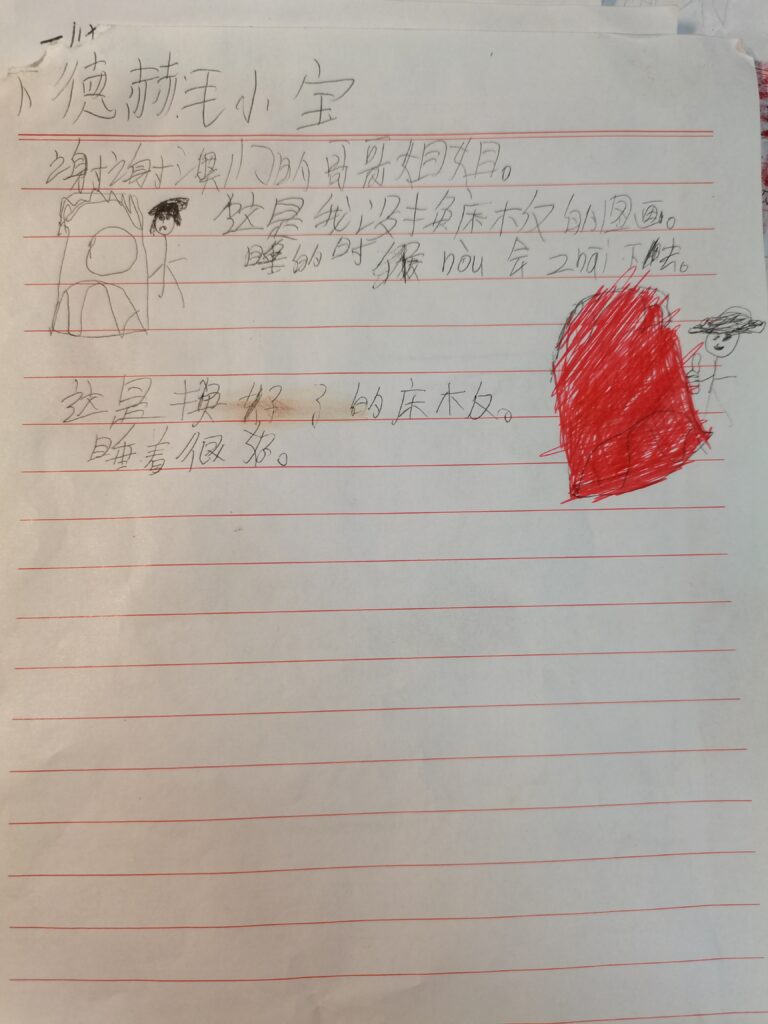 下德赫毛小宝
谢谢澳门的哥哥姐姐。
这是我没换床板的图画。
睡的时候nòu会zhai下去。
这是换好了的床板。
睡着很